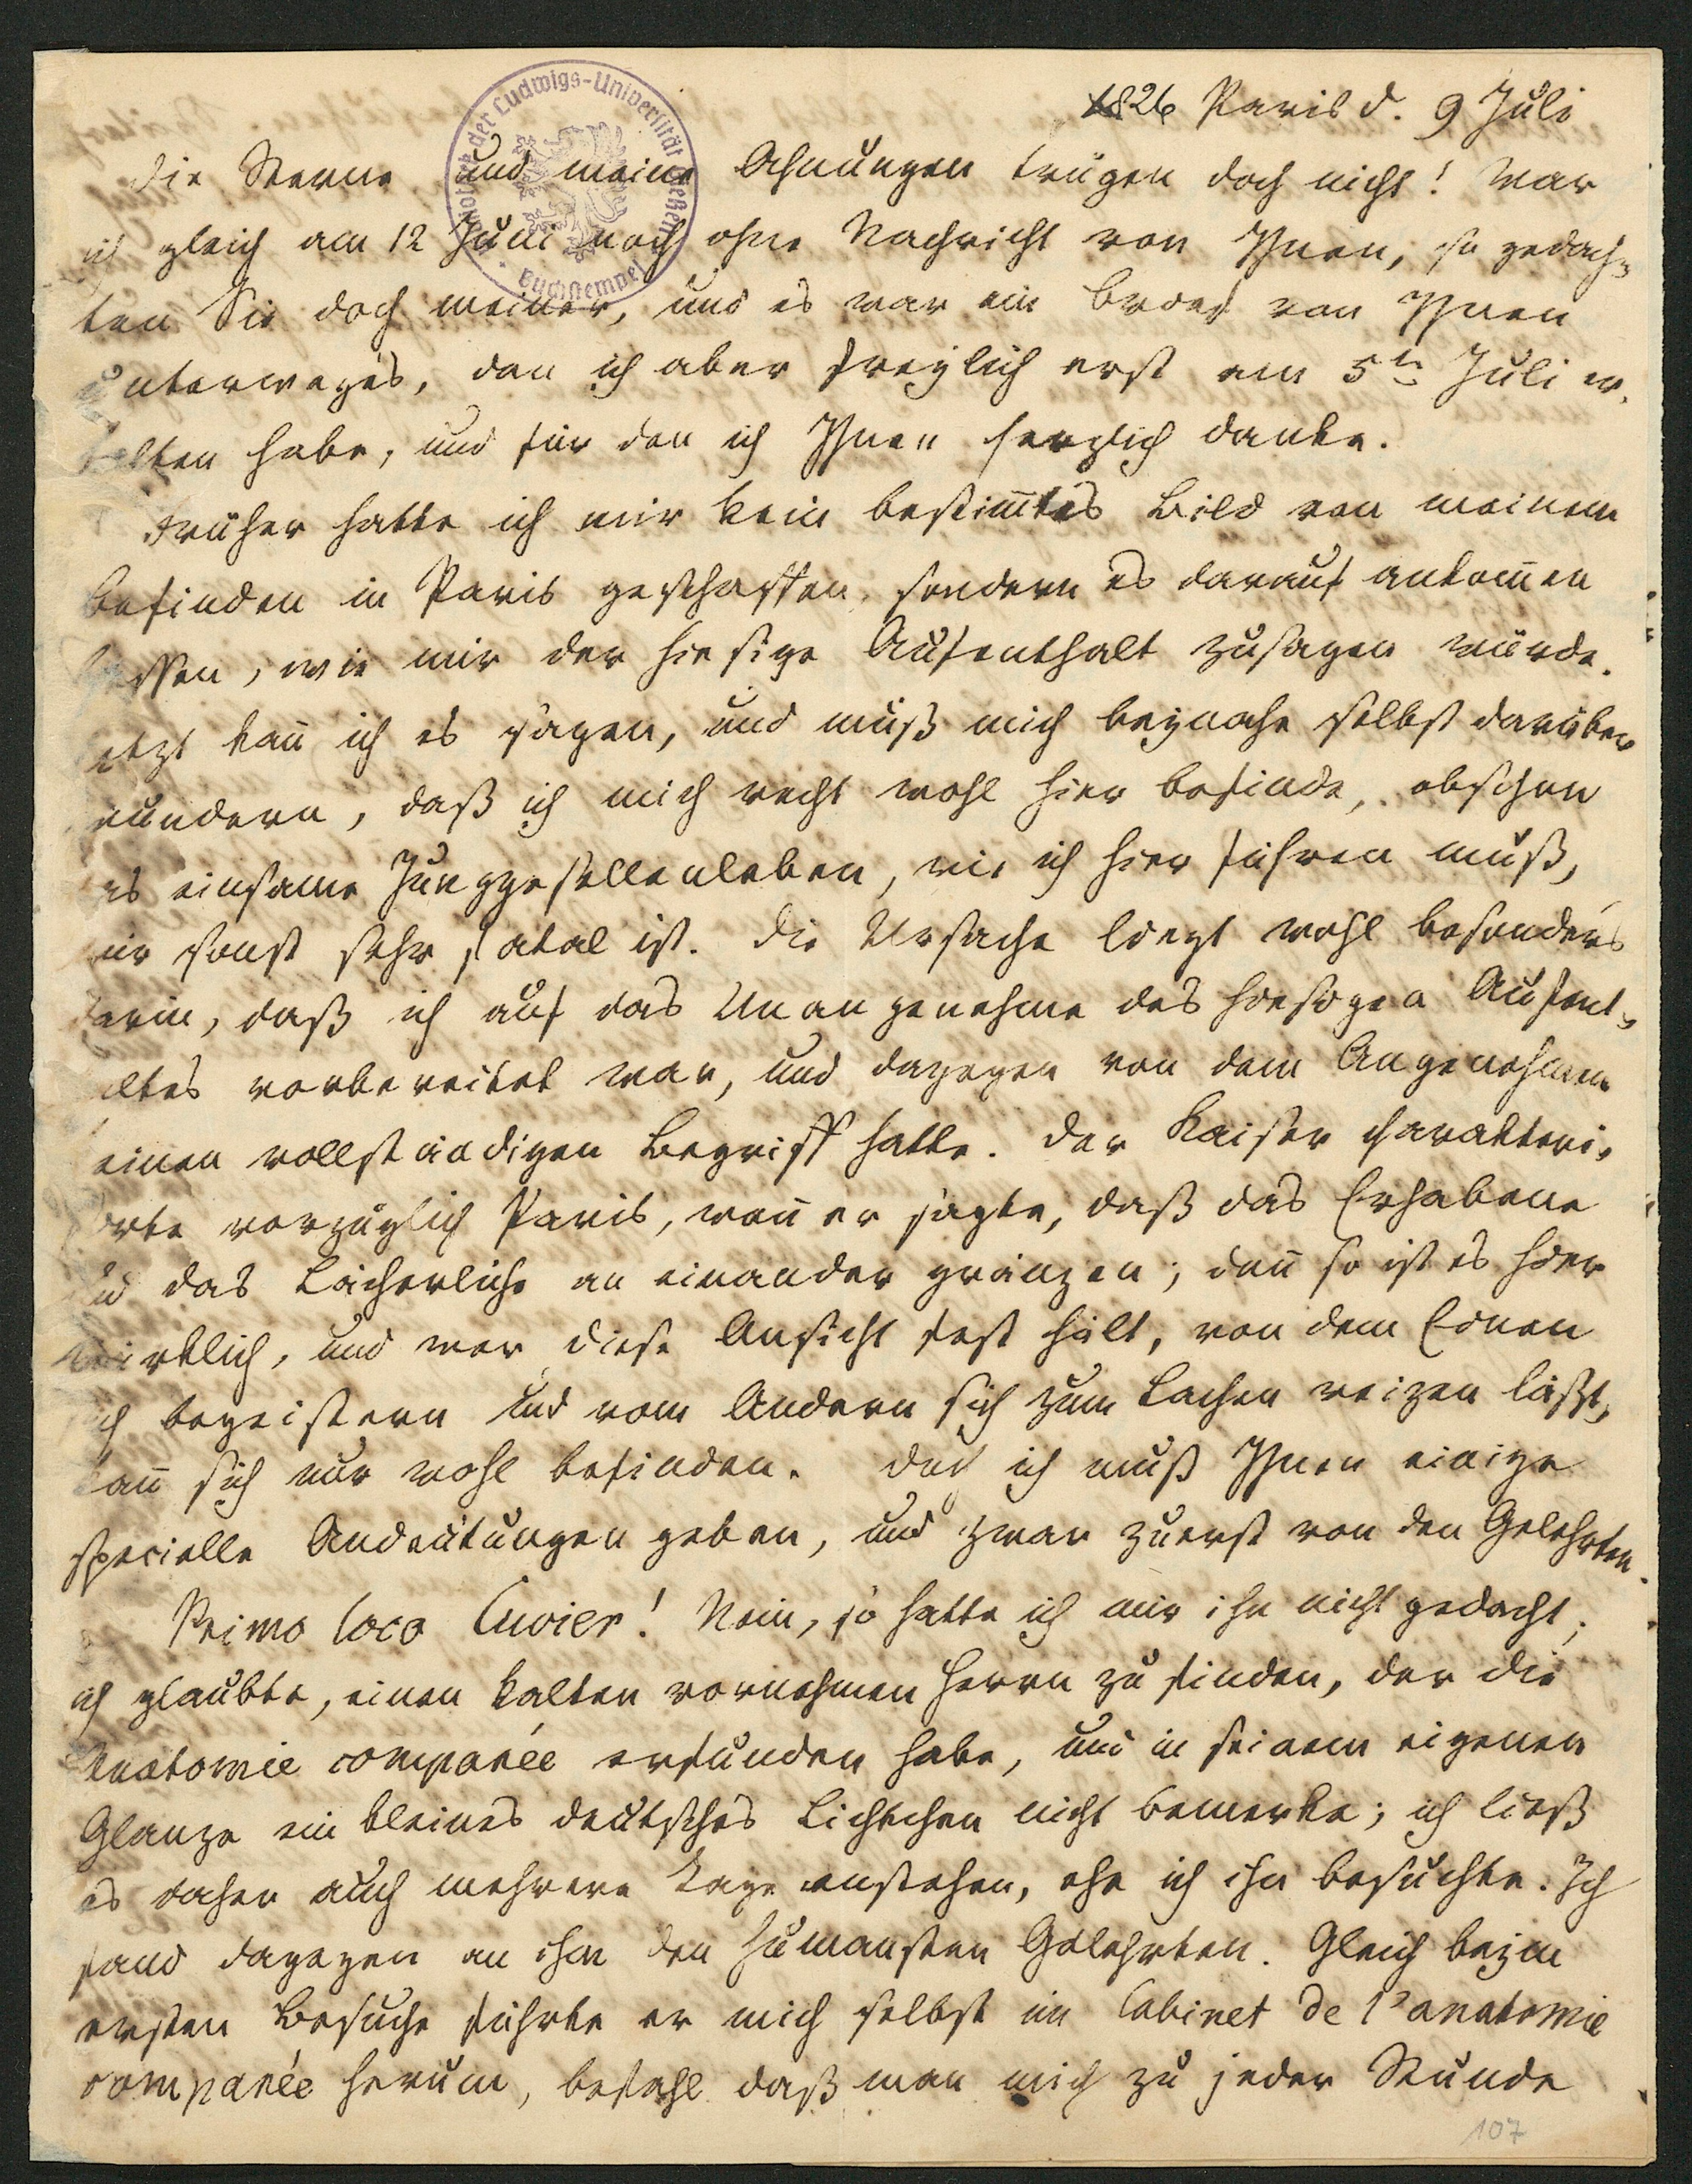 1826 Paris d. 9 Juli
Die Sterne und meine Ahnungen trügen doch nicht! War
ich gleich am 12 Juni noch ohne Nachricht von Ihnen, so gedach-
ten Sie doch meiner, und es war ein Brief von Ihnen
unterweges, den ich aber freylich erst am 5ten Juli er-
halten habe, und für den ich Ihnen herzlich danke.
Früher hatte ich mir kein bestim̅tes Bild von meinem
Befinden in Paris geschaffen, sondern es darauf ankom̅en
lassen, wie mir der hiesige Aufenthalt zusagen würde.
Jetzt kan̅ ich es sagen, und muß mich beynahe selbst darüber
wundern, daß ich mich recht wohl hier befinde, obschon
das einsame Junggesellenleben, wie ich hier führen muß,
mir sonst sehr fatal ist. Die Ursache liegt wohl besonders
darin, daß ich auf das Unangenehme des hiesigen Aufent-
haltes vorbereitet war, und dagegen von dem Angenehmen
keinen vollständigen Begriff hatte. Der Kaiser charakteri-
sirte vorzüglich Paris, wen̅ er sagte, daß das Erhabene
und das Lächerliche an einander gränzen; den̅ so ist es hier
wirklich, und wer diese Ansicht fest hält, von dem Einen
sich begeistern und vom Andern sich zum Lachen reizen läßt,
kan̅ sich nur wohl befinden. Doch ich muß Ihnen einige
specielle Andeutungen geben, und zwar zuerst von den Gelehrten.
Primo loco Cuvier! Nein, so hatte ich mir ihn nicht gedacht;
ich glaubte, einen kalten vornehmen Herrn zu finden, der die
Anatomie comparée erfunden habe, und in seinem eigenen
Glanze ein kleines deutsches Lichtchen nicht bemerke; ich ließ
es daher auch mehrere Tage anstehen, ehe ich ihn besuchte. Ich
fand dagegen an ihm den humansten Gelehrten. Gleich beym
ersten Besuche führte er mich selbst im Cabinet de l'anatomie
comparée herum, befahl daß man mich zu jeder Stunde
107
Bibliothek der Ludwigs-Universität Gießen
Buchstempel